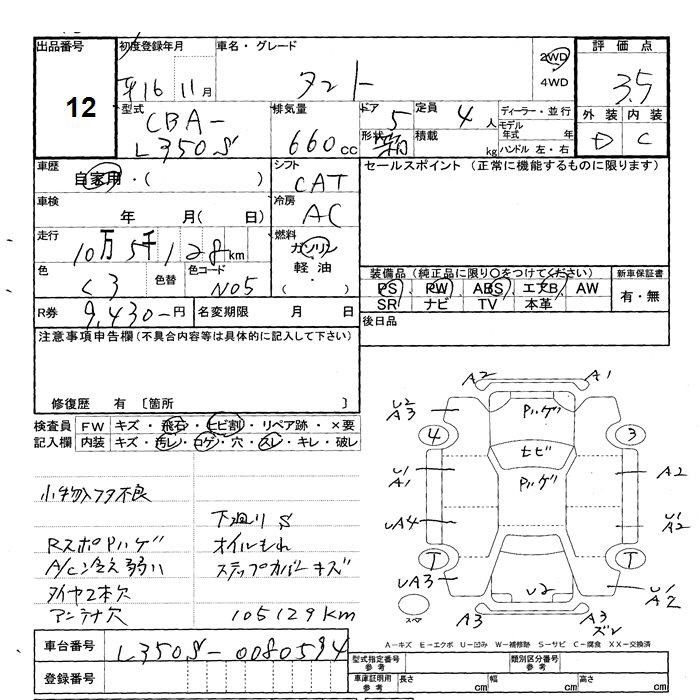 出品番号
12
初度登録年月
平16 11月
車名・グレード
タント
2WD
4WD
評価点
3.5
外装 内装
D C
型式
CBA-
L350S
排気量
660cc
ドア
5
定員 4人
形状 箱
積載 kg
ディーラー・並行
モデル年式 年
ハンドル 左・右
車歴
自家用・( )
シフト
CAT
セールスポイント(正常に機能するものに限ります)
車検
年 月( 日)
冷房
AC
走行
10万5千128km
燃料
ガソリン
軽油
( )
色
クロ
色替
色コード
NO5
装備品(純正品に限り○をつけてください)
PS PW ABS エアB AW
SR ナビ TV 本革
新車保証書
有・無
R券 9,430-円
名変期限 月 日
後日品
注意事項申告欄(不具合内容等は具体的に記入して下さい)
修復歴 有 〔箇所
検査員
記入欄
FW キズ・飛石・ヒビ割・リペア跡・×要
内装 キズ・汚レ・コゲ・穴・スレ・キレ・破レ
小物入フタ不良
下廻りS
RスポPハゲ
オイルもれ
A/C冷え弱い
ステップカバーキズ
タイヤ2本欠
アンテナ欠
105129KM
A2 A1
U2
A3
Pハゲ
4 3
ヒビ
U1
A1
Pハゲ
A2
UA4
U1
A2
T T
UA3
U2
U1
A2
スペア
A3 A3
ズレ
A-キズ E-エクボ U-凹み W-補修跡 S-サビ C-腐食 XX-交換済
車台番号 L350S-0080594
登録番号
型式指定番号
参考
類別区分番号
参考
車庫証明用
参考
長さ cm
幅 cm
高さ cm